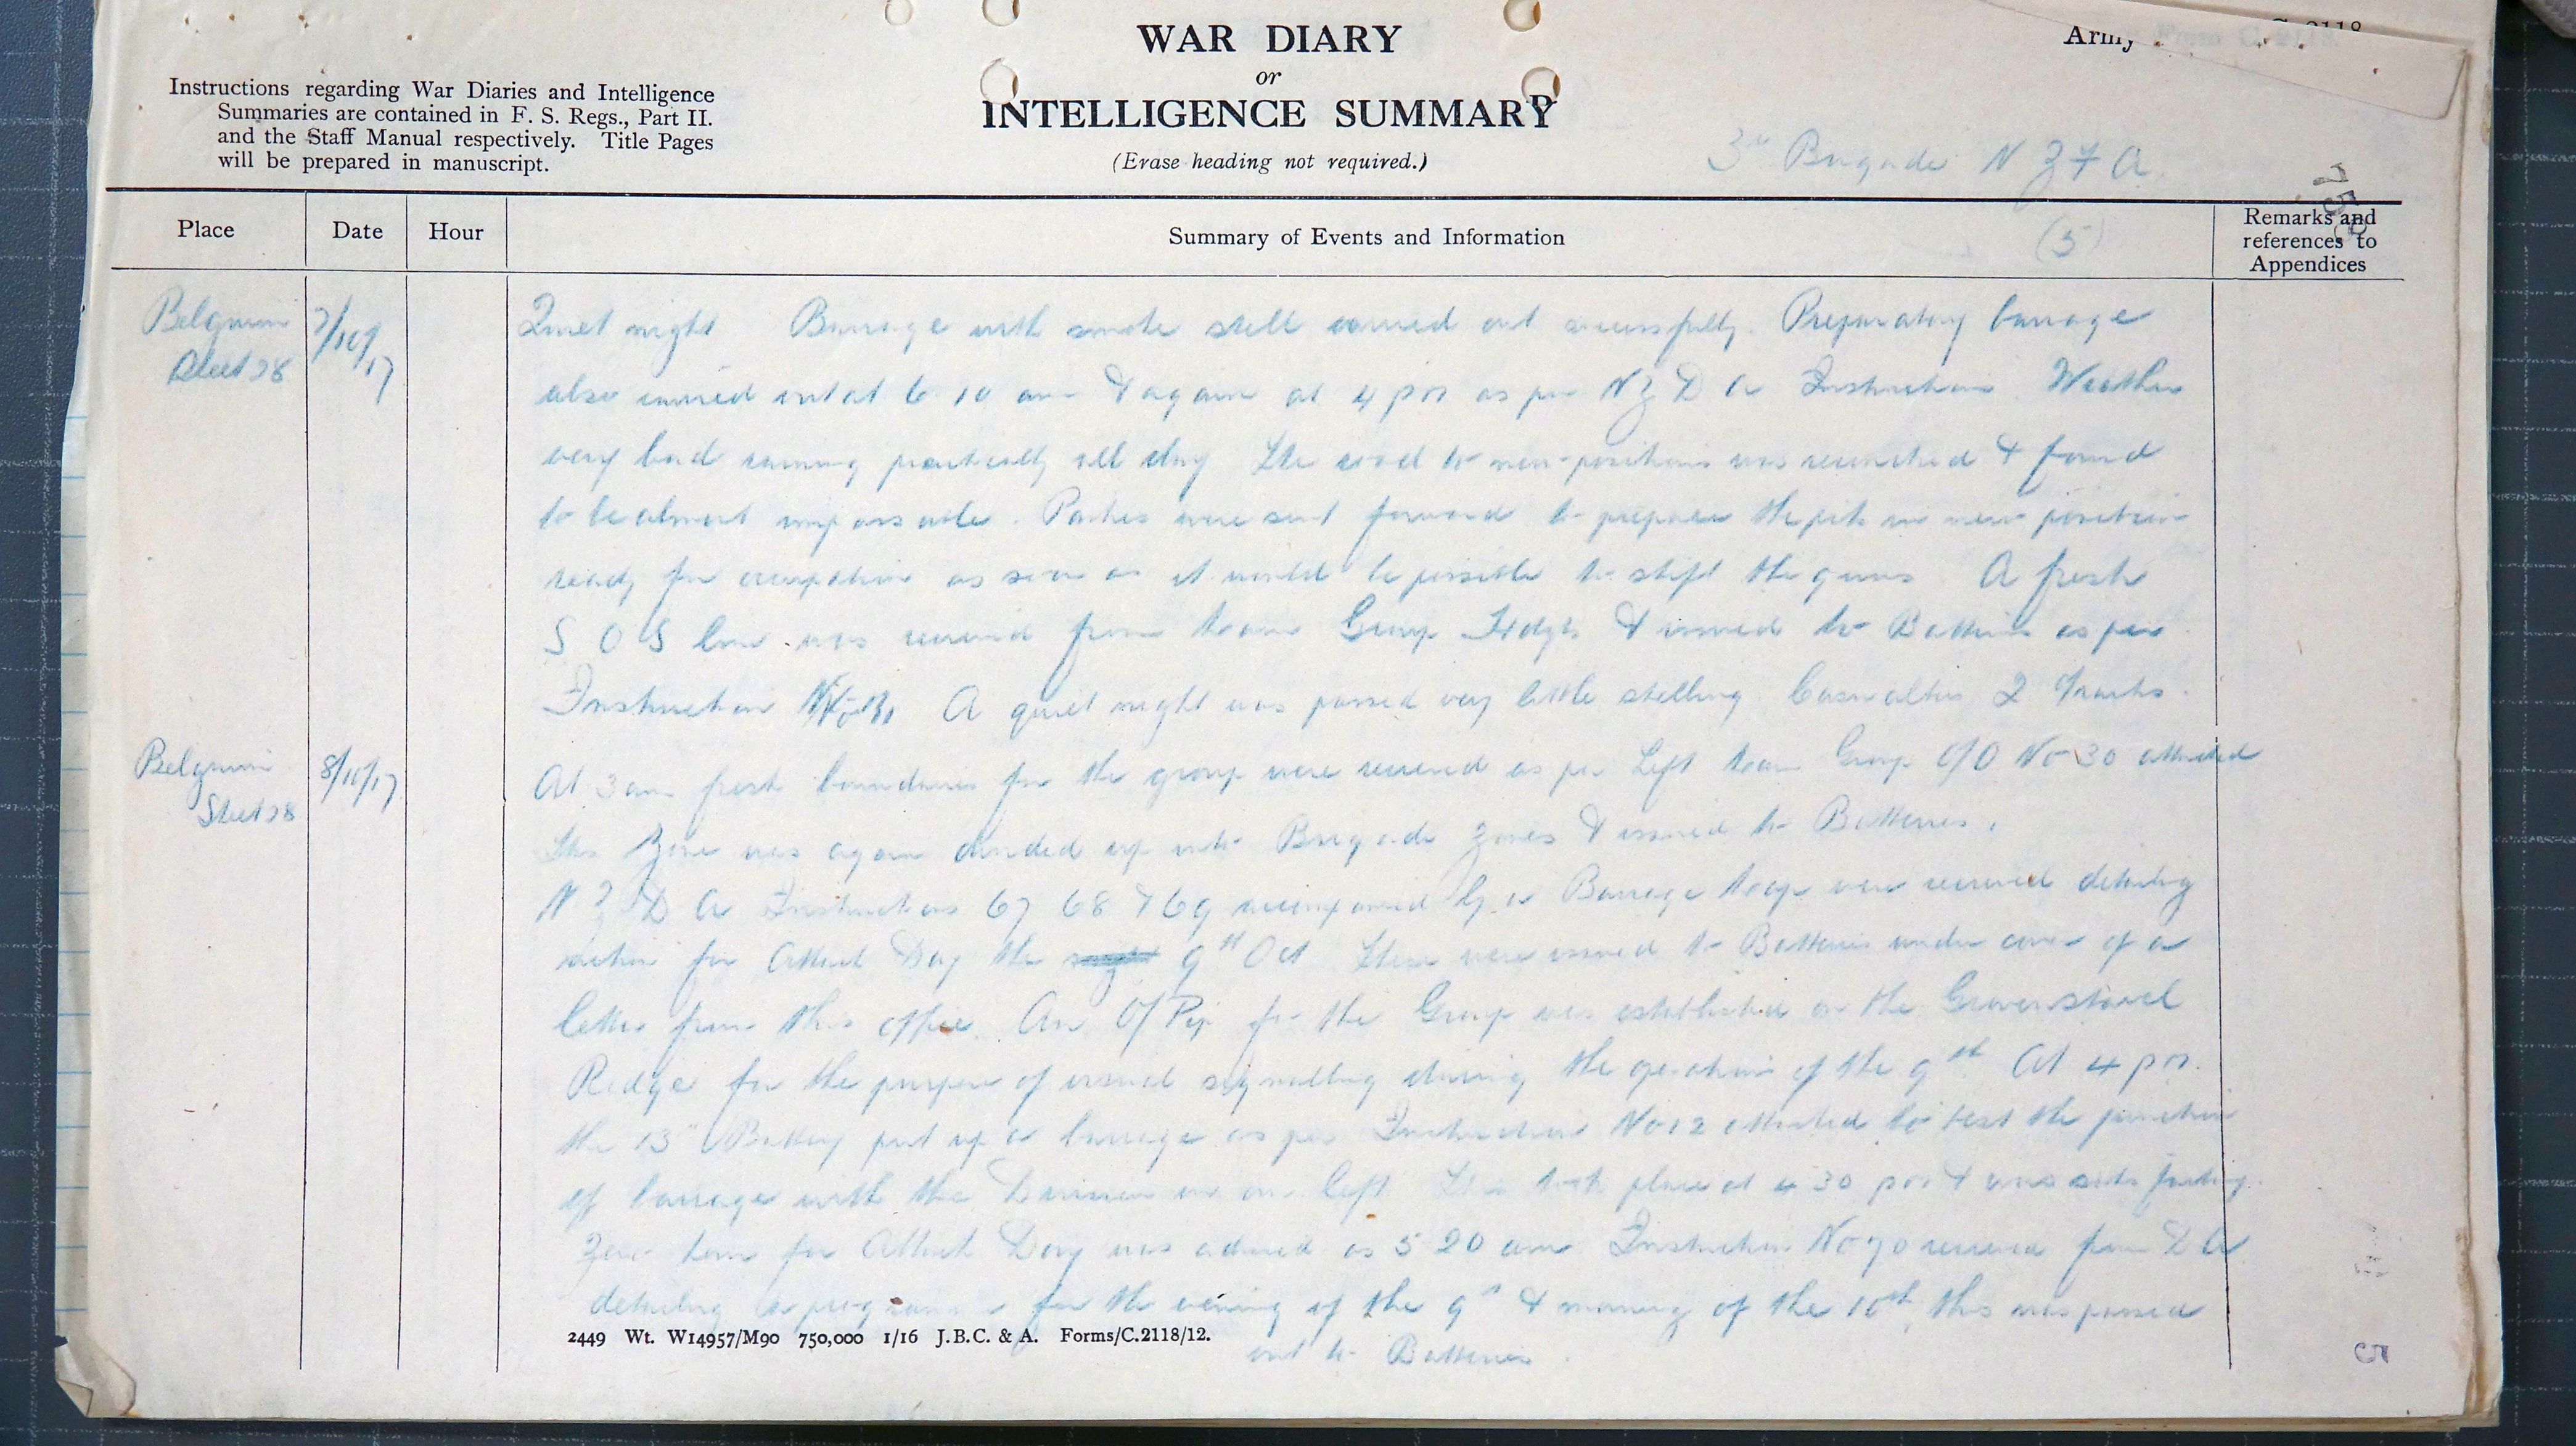 WAR DIARY
or
INTELLIGENCE SUMMARY
(Erase heading not required.)
Army
Instructions regarding War Diaries and Intelligence
Summaries are contained in F. S. Regs., Part II.
and the Staff Manual respectively. Title Pages
will be prepared in manuscript.
3rd Brigade N Z F A
Place Date Hour Summary of Events and Information (5) Remarks and references to Appendices
Belgium Sheet 28 7/10/17
Quiet night Barrage with smoke shell carried out sucessfully. Preparatory barrage
also carried out at 6 10 am & again at 4 pm as per N Z D A Instructions. Weather
very bad raining practically all day The road to new positions was & found
to be almost impassable. Parties were sent forward to prepare the pits in new position
ready for occupation as soon as it would be possible to shift the guns A fresh
S O S line was received from Group Hdqts & issued to Batteries as per
Instruction A quiet night was passed very little shelling. Casualties 2 O/ranks.
Belgium Sheet 28 8/10/17
At 3 am fresh boundaries for the group were received as per Left Group O/O No 30 attached
This Zone was again divided up into Brigade Zones & issued to Batteries.
N Z D A Instructions 67 68 & 69 accompanied by a Barrage were received detailing
action for Attack Day the 9th Oct These were issued to Batteries under cover of a
letter from this office. An O/Pip for the Group was established on the Gravenstafel
Ridge for the purpose of visual signalling during the operations of the 9th At 4 pm.
the 13th Battery put up a barrage as per Instruction No 12 attached to test the junction
of barrage with the Division on our left This took place at 4 30 pm & was satisfactory.
Zero hour for Attack Day was advised as 5 20 am Instruction No 70 received from D A
detailing a programme for the evening of the 9th & morning of the 10th, this was passed
out to Batteries.
2449 Wt. W14957/M90 750,000 1/16 J.B.C. & A. Forms/C.2118/12.